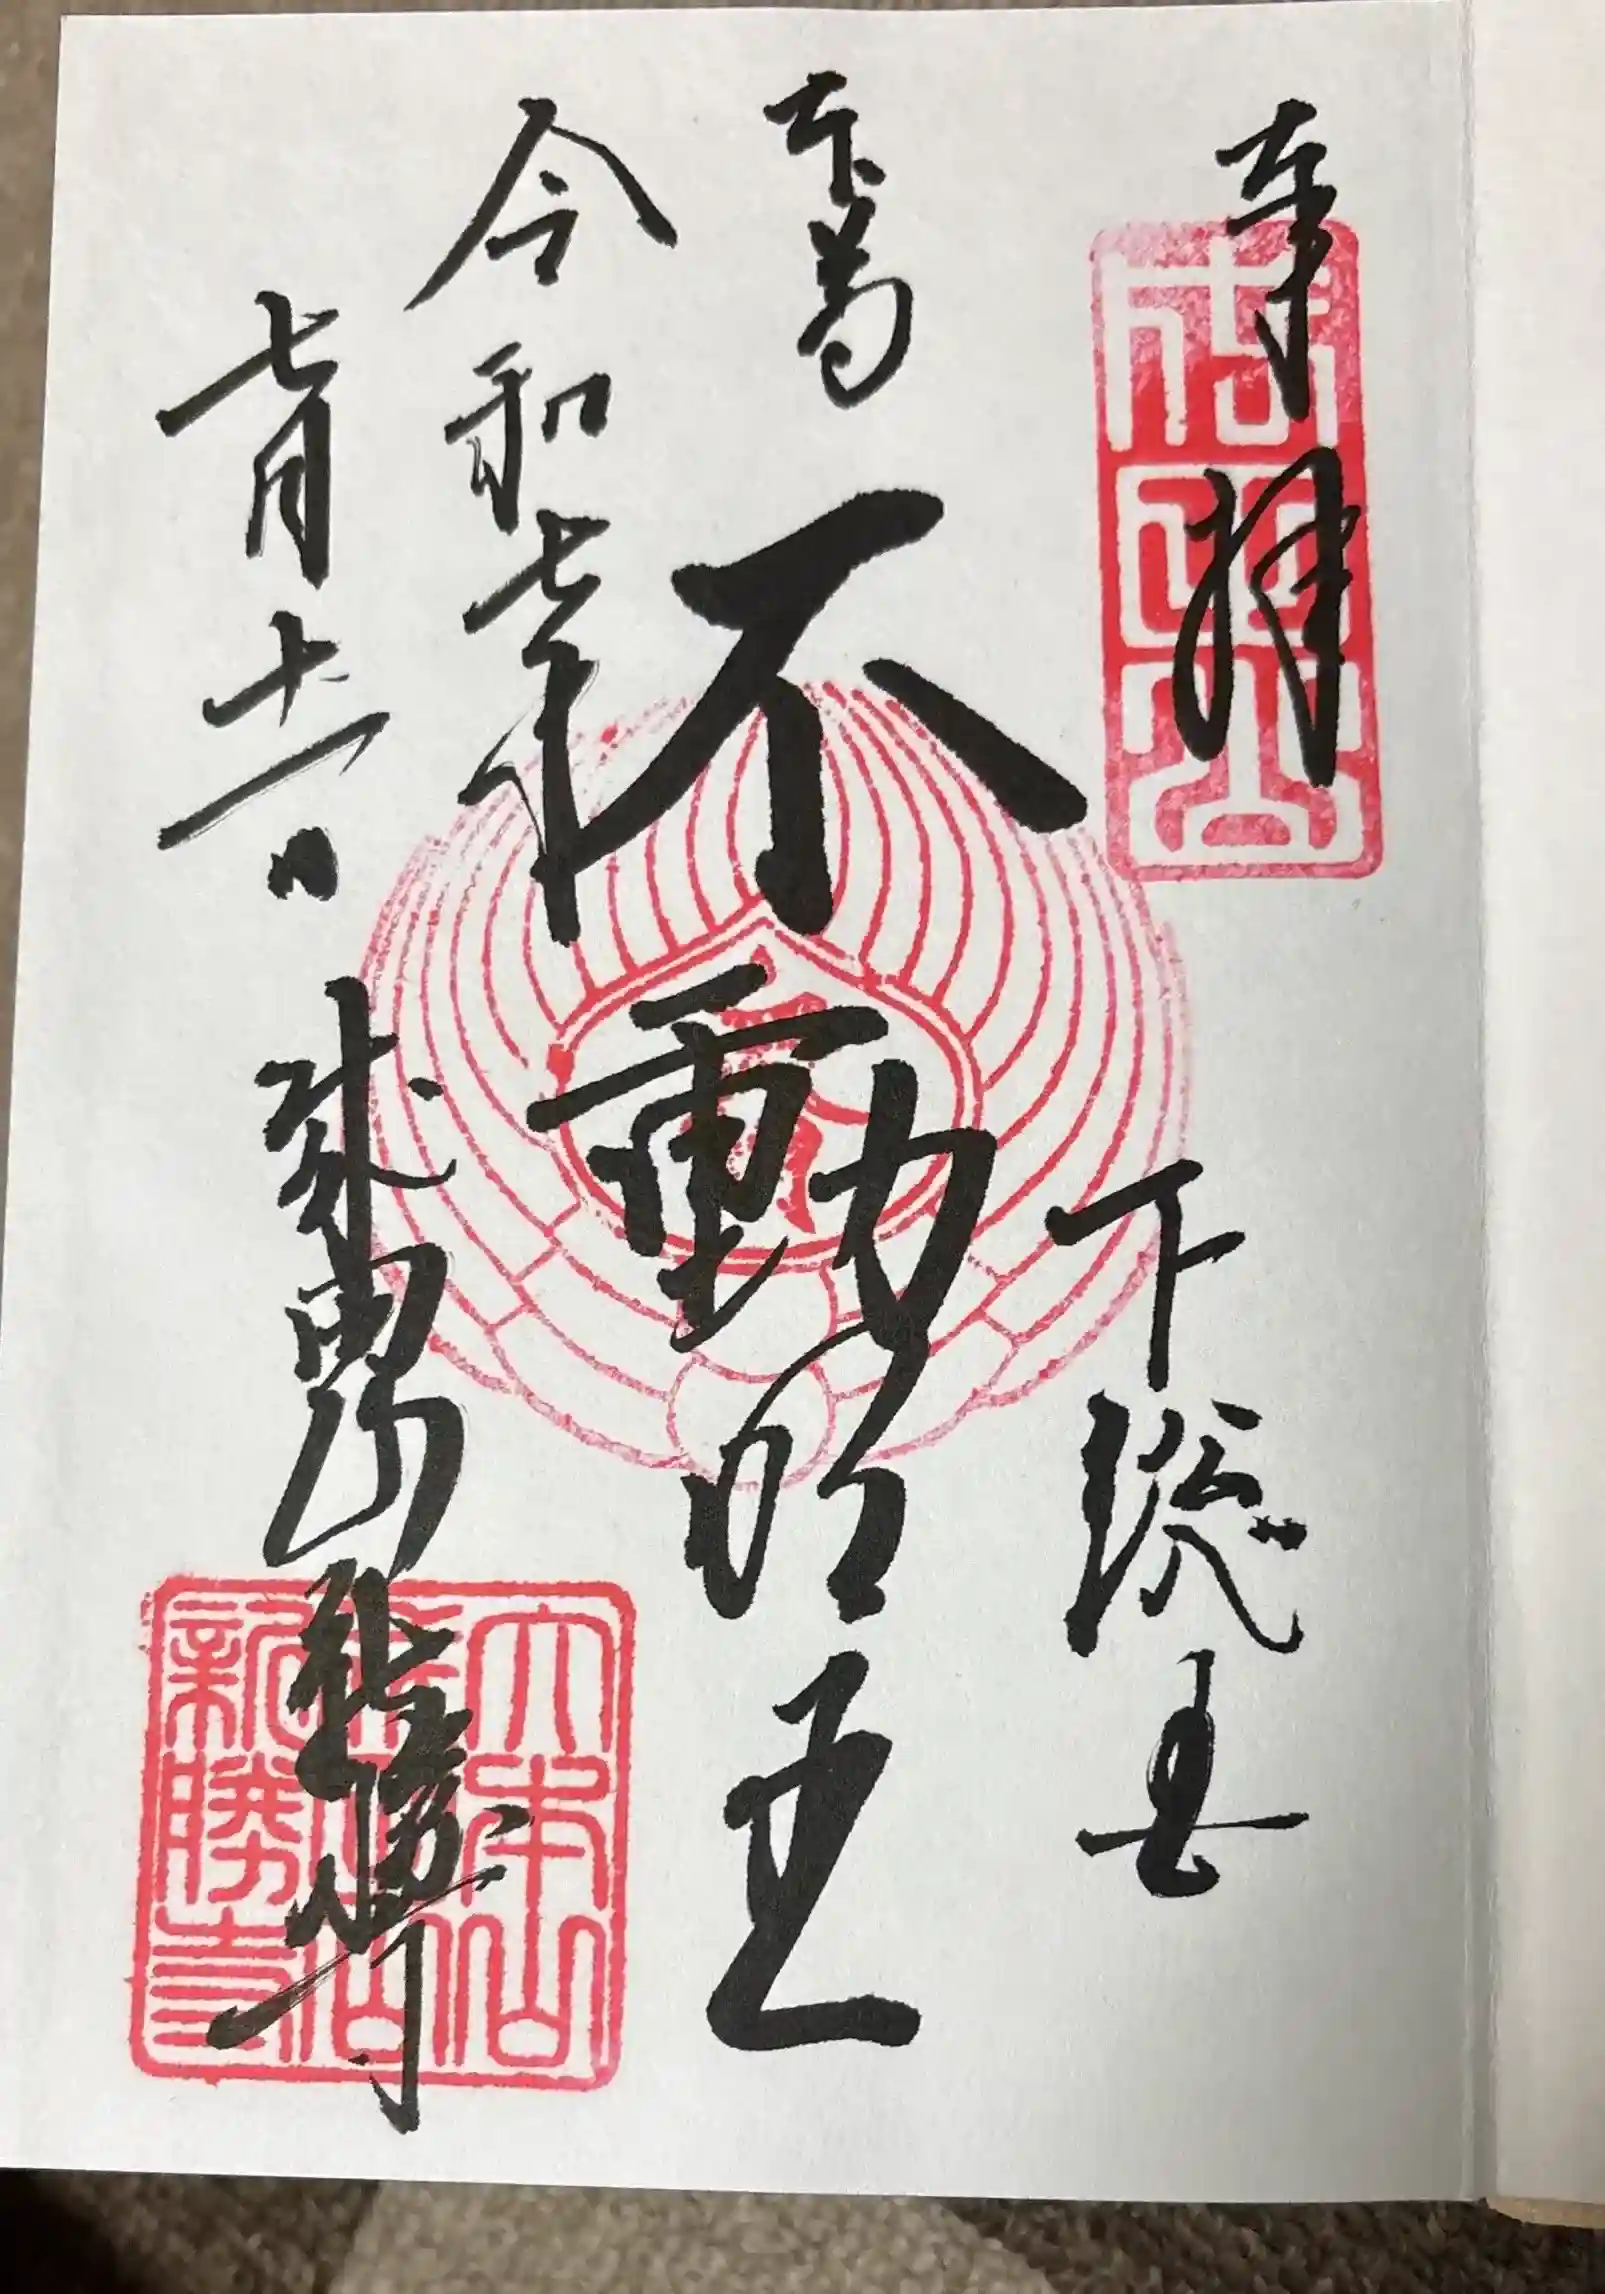 奉拝
下総
本尊
不動明王
令和七年
七月十一日
成田山新勝寺
大本山
成田山
新勝寺